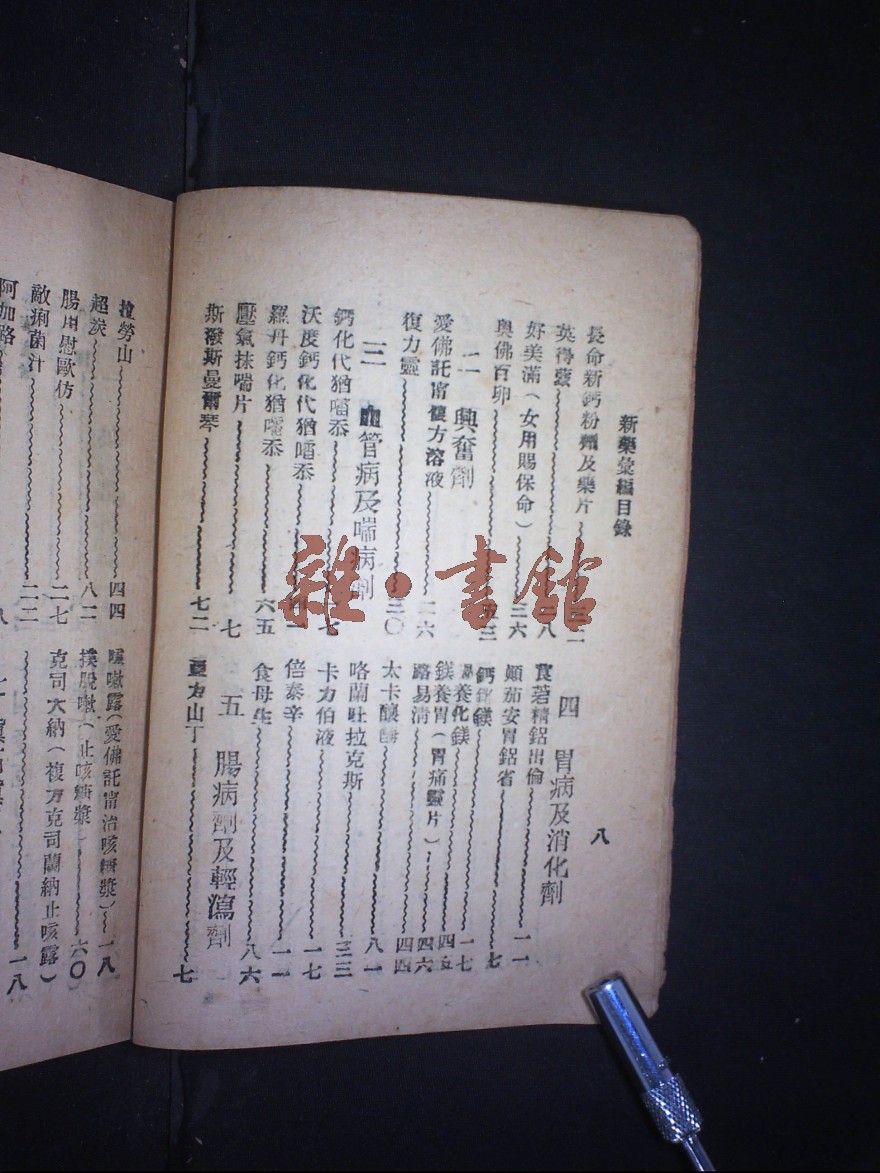 新藥彙編目錄
八
長命新鈣粉劑及藥片
英得蒙 三八
好美滿(女用賜保命) 三六
與佛百卯 五三
二 興奮劑
愛佛託甯復方溶液 二六
復力靈 三〇
三 血管病及喘病劑
鈣化代猶嚐忝 七
沃度鈣化代猶嚐忝
羅丹鈣化猶嚐忝 六五
壓氣抹喘片 七
斯潑斯曼爾琴 七二
四 胃病及消化劑
食碧精鋁出倫 一一
顛茄安胃鋁省 七
鈣化鎂
養化鎂 一七
鎂養胃(胃痛靈片) 四五
路易清 四六
太卡釀酶 四四
咯蘭吐拉克斯 八一
卡力伯液 三三
倍泰辛 一七
食母生 一一
八六
五 腸病劑及輕瀉劑
複方山丁 七
拉勞山 四四
超炭 八二
腸用慰歐仿 二七
敵痢菌汁 二二
阿加路
咳嗽露(愛佛託甯治咳糖漿) 一八
撲脫嗽(止咳糖漿) 六〇
克司大納(複方克司蘭納止咳露) 一八
雜·書館